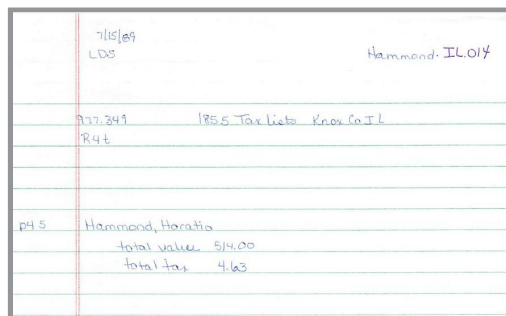 7/15/89
LDS
Hammond. IL.014
977.349 1855 Tax Lists Knox Co IL
R4t
p45 Hammond, Horatio
total value 514.00
total tax 4.63